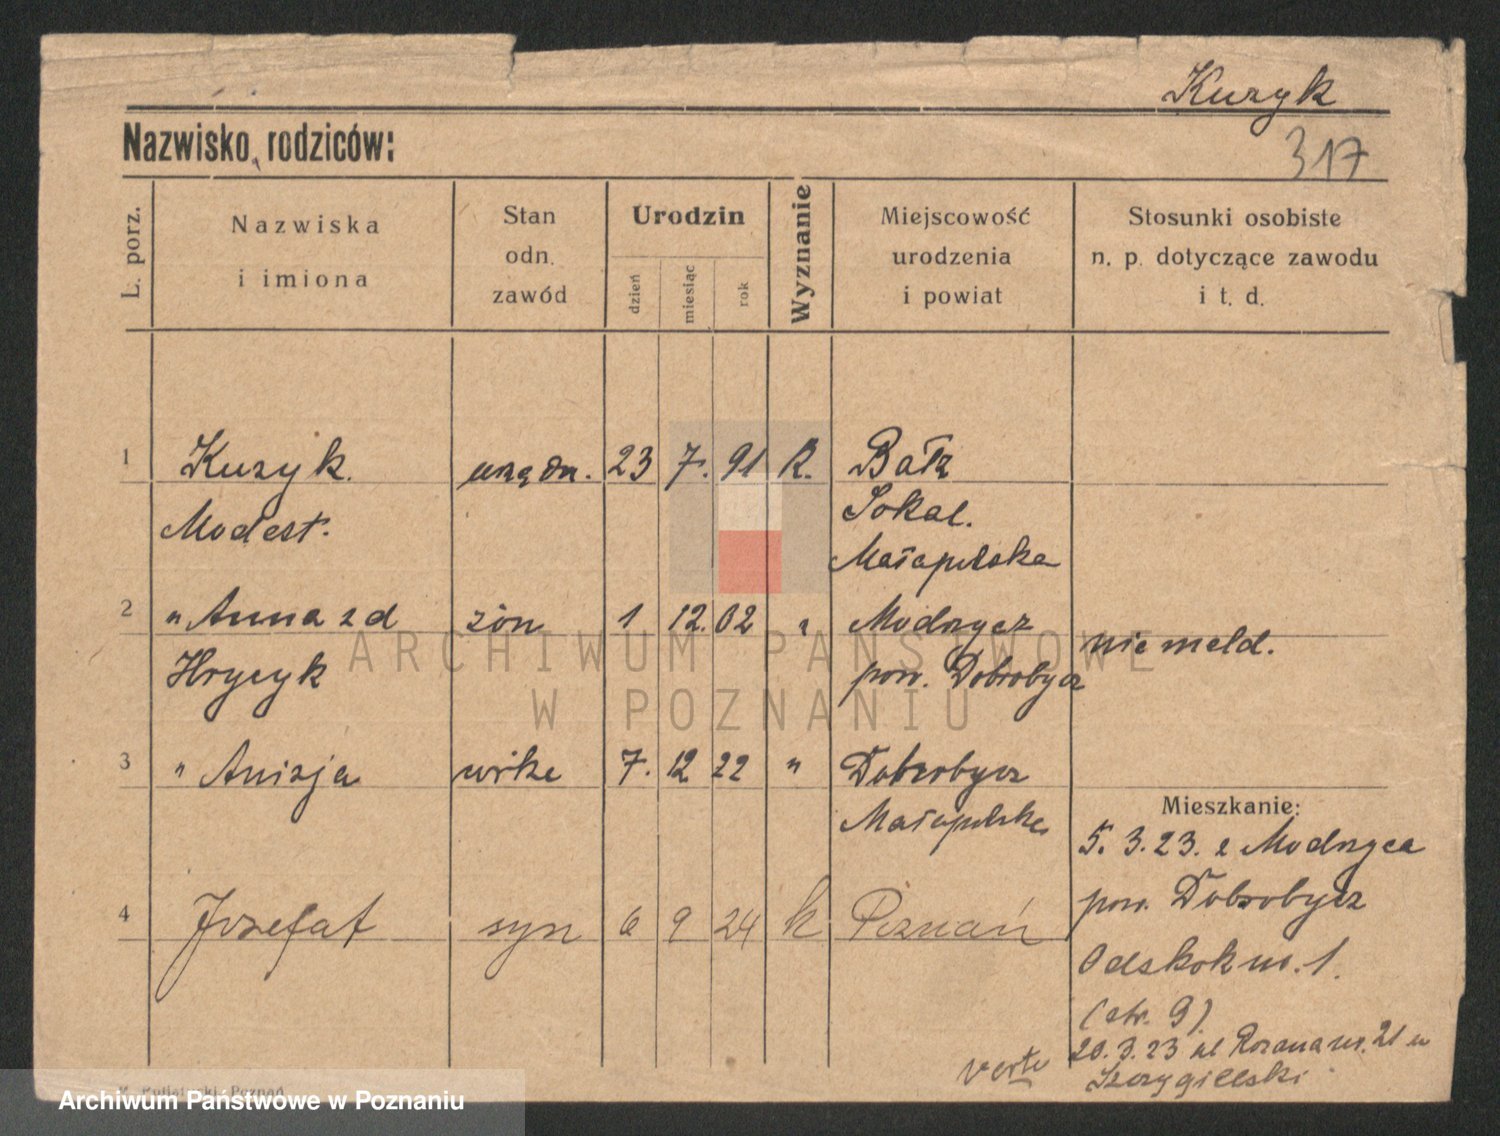 Kuzyk
Nazwisko rodziców:
317
L. porz.
Nazwiska
i imiona
Stan
odn.
zawód
Urodzin
dzień
miesiąc
rok
Wyznanie
Miejscowość
urodzenia
i powiat
Stosunki osobiste
n. p. dotyczące zawodu
i t. d.
1 Kuzyk urzędn. 23 7. 91 R. Bałz
Modest. Sokal.
Małopolska
2 " Anna zd żon 1 12. 02 " Modrycz
nie meld.
Hrycyk pow. Dobrobycz
3 " Anizja 7. 12 22 " Dobrobycz
Mieszkanie:
Małopolska
5. 3. 23. z Modryca
pow. Dobrobycz
4 Jozefat syn 6 9 24 k Poznań
Odskok nr. 1.
(str. 9)
20. 3. 23 ul Rozana nr. 21 u
verte
Szczygielski
ARCHIWUM PAŃSTWOWE
W POZNANIU
Archiwum Państwowe w Poznaniu